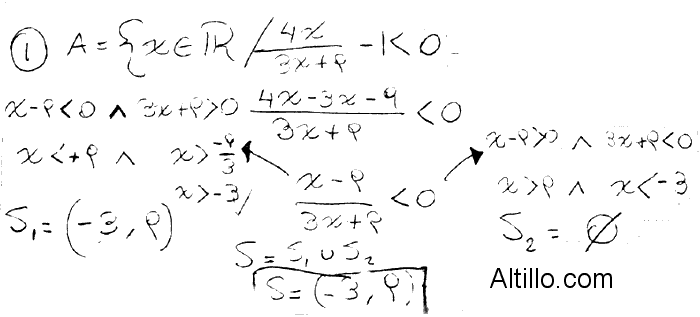 ① A = {x ∈ ℝ / 4x/(3x+9) - 1 < 0
x-9<0 ∧ 3x+9>0
(4x-3x-9)/(3x+9) < 0
x<+9 ∧ x>-9/3
x>-3/
S₁ = (-3, 9)
(x-9)/(3x+9) < 0
x-9>0 ∧ 3x+9<0
x>9 ∧ x<-3
S₂ = ∅
S = S₁ ∪ S₂
S = (-3, 9)
Altillo.com